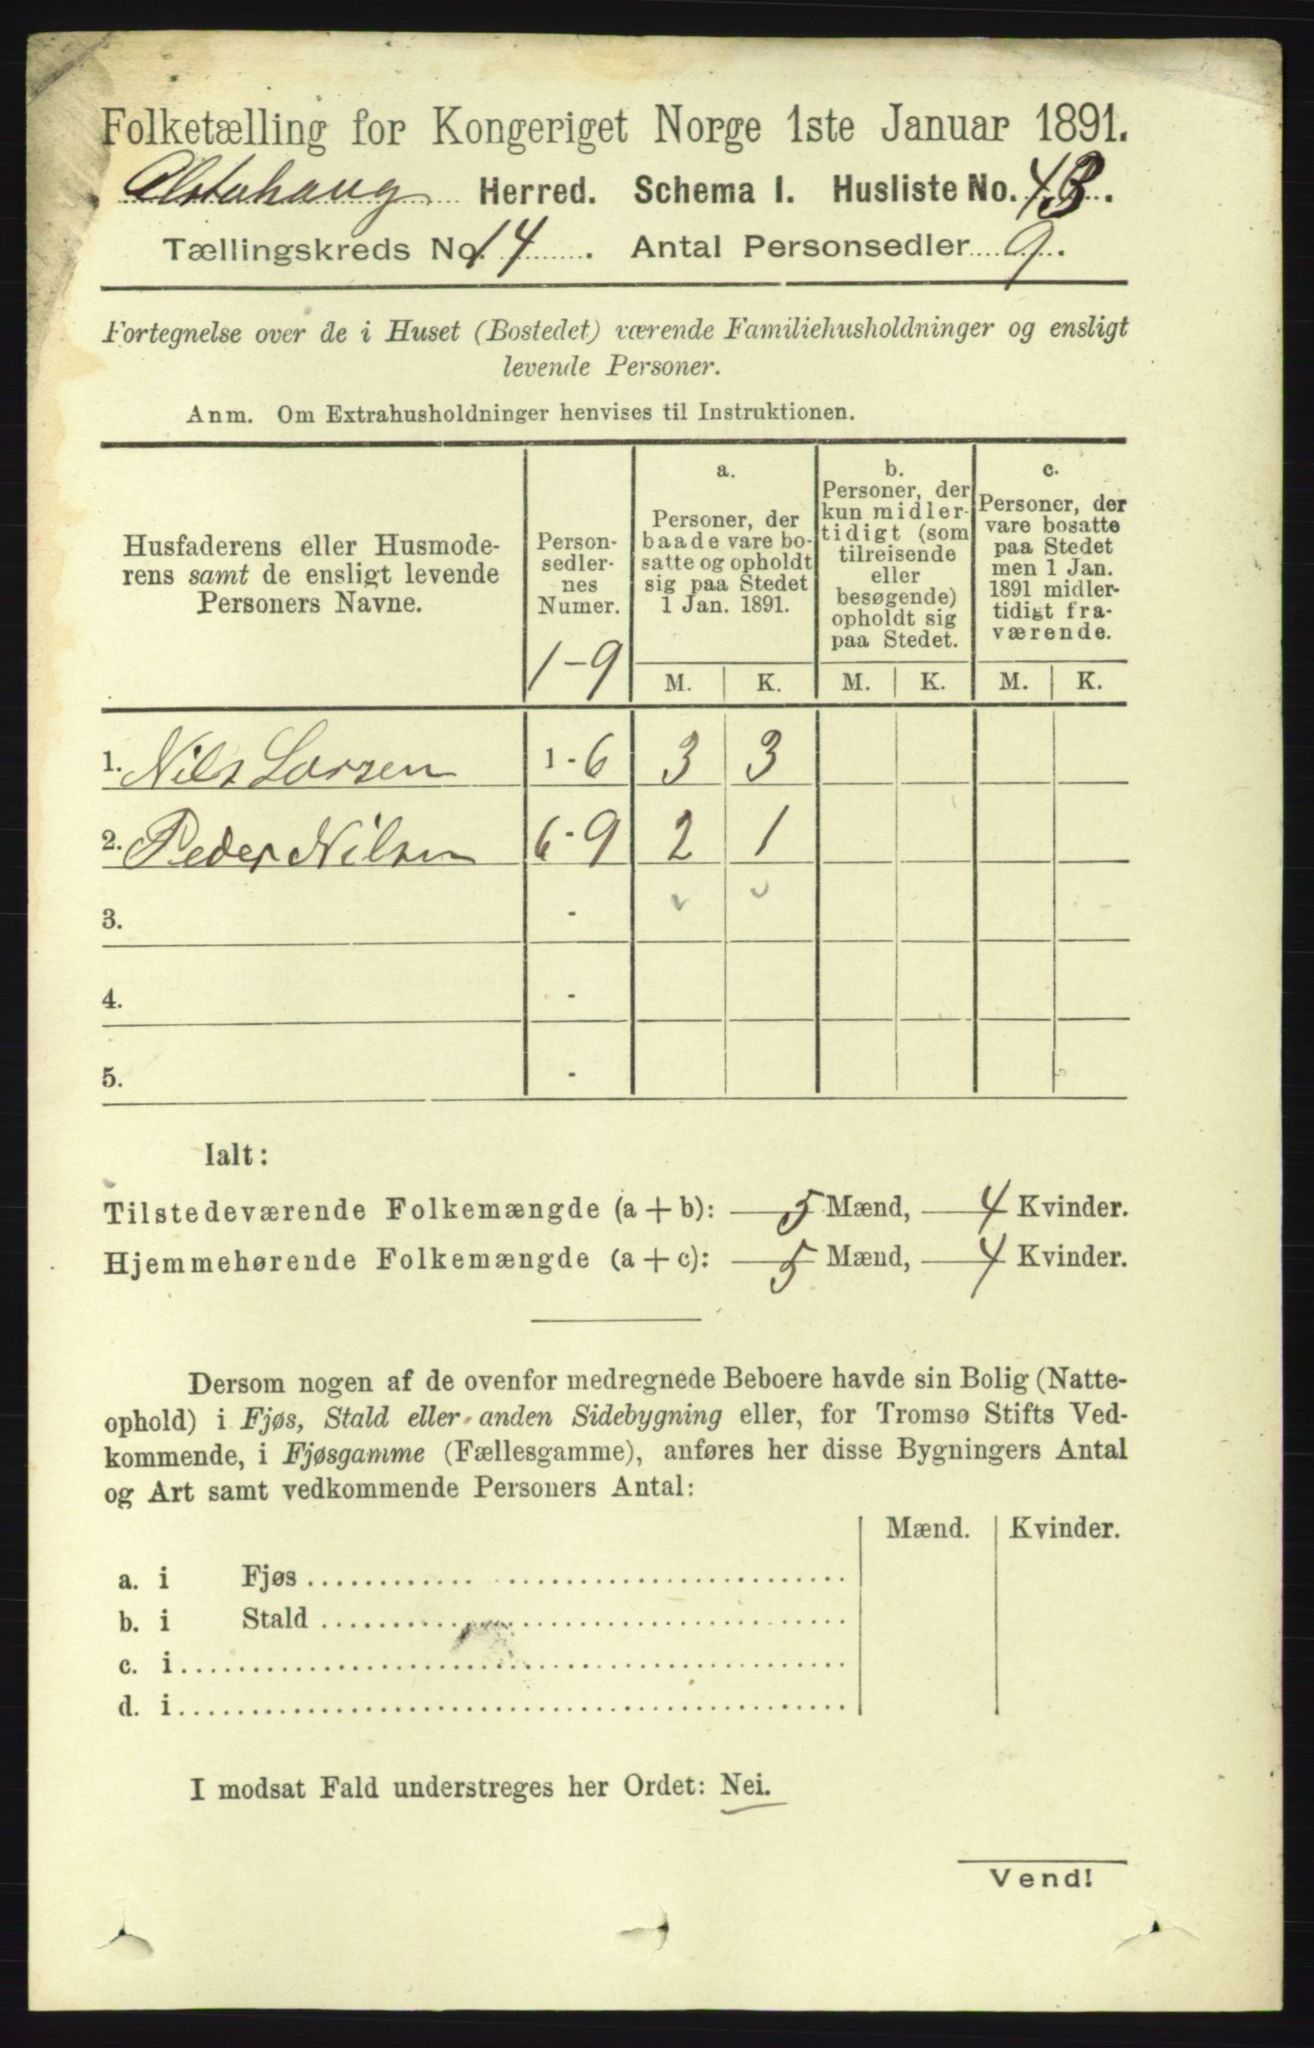 Folketælling for Kongeriget Norge 1ste Januar 1891.
Alstahaug Herred. Schema I. Husliste No. 43.
Tællingskreds No. 14. Antal Personsedler 9.
Fortegnelse over de i Huset (Bostedet) værende Familiehusholdninger og ensligt
levende Personer.
Anm. Om Extrahusholdninger henvises til Instruktionen.
Husfaderens eller Husmode-
rens samt de ensligt levende
Personers Navne.
Person-
sedler-
nes
Numer.
1-9
a.
Personer, der
baade vare bo-
satte og opholdt
sig paa Stedet
1 Jan. 1891.
b.
Personer, der
kun midler-
tidigt (som
tilreisende
eller
besøgende)
opholdt sig
paa Stedet.
c.
Personer, der
vare bosatte
paa Stedet
men 1 Jan.
1891 midler-
tidigt fra-
værende.
M. K. M. K. M. K.
1. Nils Larsen 1-6 3 3
2. Peder Nilsen 6-9 2 1
3. -
4. -
5. -
Ialt:
Tilstedeværende Folkemængde (a + b): 5 Mænd, 4 Kvinder.
Hjemmehørende Folkemængde (a + c): 5 Mænd, 4 Kvinder.
Dersom nogen af de ovenfor medregnede Beboere havde sin Bolig (Natte-
ophold) i Fjøs, Stald eller anden Sidebygning eller, for Tromsø Stifts Ved-
kommende, i Fjøsgamme (Fællesgamme), anføres her disse Bygningers Antal
og Art samt vedkommende Personers Antal:
Mænd. Kvinder.
a. i Fjøs
b. i Stald
c. i
d. i
I modsat Fald understreges her Ordet: Nei.
Vend!